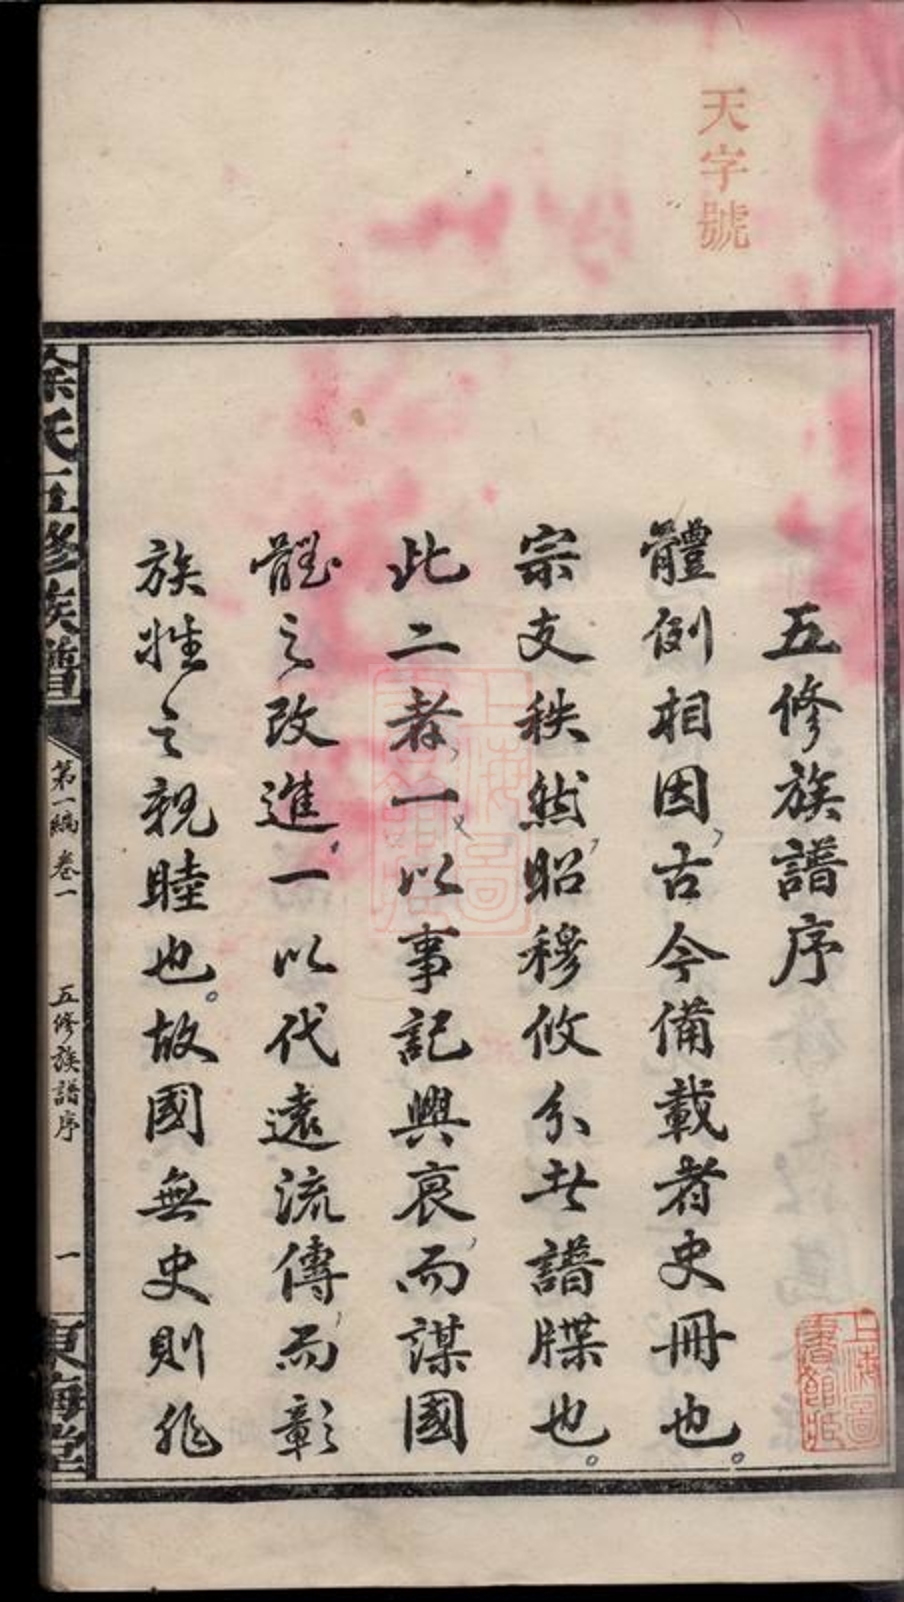 天字號
五修族譜序
體例相因，古今備載者史冊也。
宗支秩然，昭穆攸分者譜牒也。
此二者，一以事記興衰，而謀國
體之改進，一以代遠流傳，而彰
族姓之親睦也。故國無史則非
徐氏五修族譜
第一編 卷一
五修族譜序
一
東海堂
上海圖書館藏
上海圖書館藏